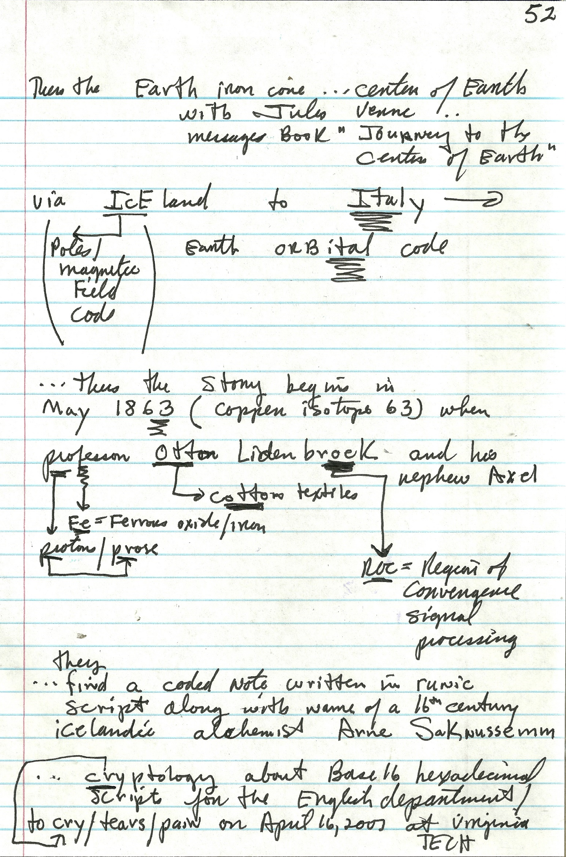 52
Thus the Earth iron core ... center of Earth
with Jules Verne ..
messages Book "Journey to the
Center of Earth"
via IcEland to Italy →
(Poles/
magnetic
Field
Code)
Earth ORBital code
... thus the story begins in
May 1863 (copper isotope 63) when
professor Otton Lidenbrock and his
nephew Axel
→ cotton textiles
Fe = Ferrous oxide/iron
proton/prose
ROC = Region of
Convergence
signal
processing
they
... find a coded note written in runic
script along with name of a 16th century
icelandic alchemist Arne Saknussemm
... cryptology about Base 16 hexadecimal
script for the English department/
to cry/tears/pain on April 16, 2007 at Virginia
TECH